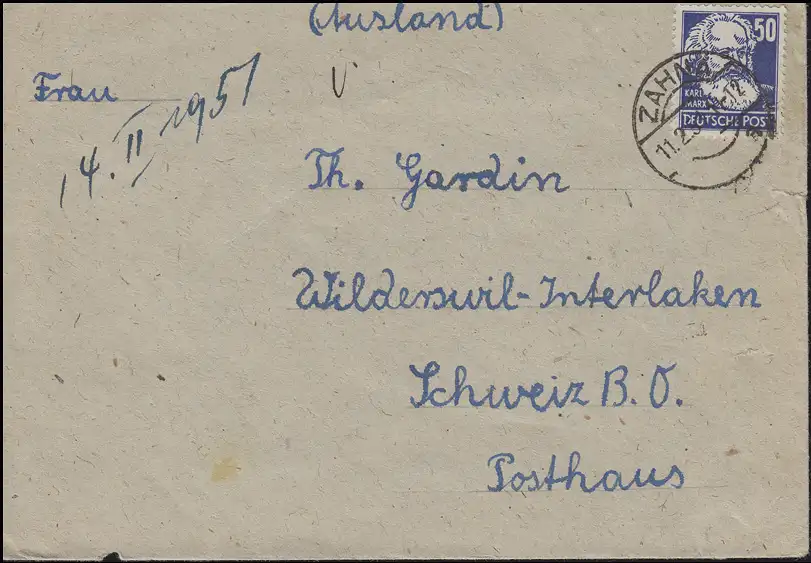 (Ausland)
50
KARL
MARX
DEUTSCHE POST
11.2.5
Frau
14. II 1951
Th. Gardin
Wilderswil-Interlaken
Schweiz B. O.
Posthaus